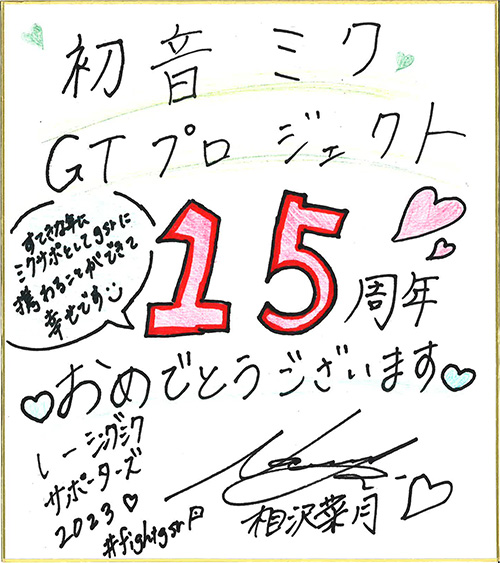 初音ミク
GTプロジェクト
すてきな年に
ミクサポとしてgsrに
携わることができて
幸せです
15周年
おめでとうございます
レーシングミク
サポーターズ
2023♡
#fightgsr
相沢菜月